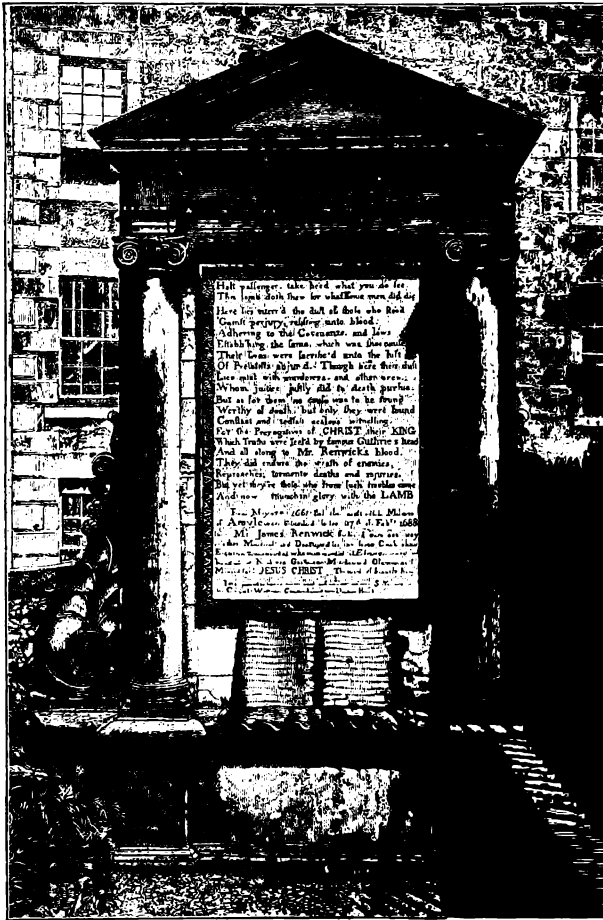 Halt passenger, take heed what you do see,
This tomb doth shew for what some men did die
Here lies interr'd the dust of those who stood
'Gainst perjury, resisting unto blood;
Adhering to the Covenants, and laws
Establishing the same, which was the cause
Their lives were sacrific'd unto the lust
Of Prelatists abjur'd. Though here their dust
Lies mixt with murderers and other crew,
Whom justice justly did to death pursue:
But as for them no cause was to be found
Worthy of death, but only they were found
Constant and stedfast zealous witnessing,
For the Prerogatives of CHRIST their KING
Which Truths were seal'd by famous Guthrie's head
And all along to Mr. Renwick's blood.
They did endure the wrath of enemies,
Reproaches, torments, deaths and injuries.
But yet they're those who from such troubles came
And now triumph in glory with the LAMB
From May 1661 that the Marquis
of Argyle was beheaded to the 17th of Feb.ry 1688
Mr. James Renwick
JESUS CHRIST